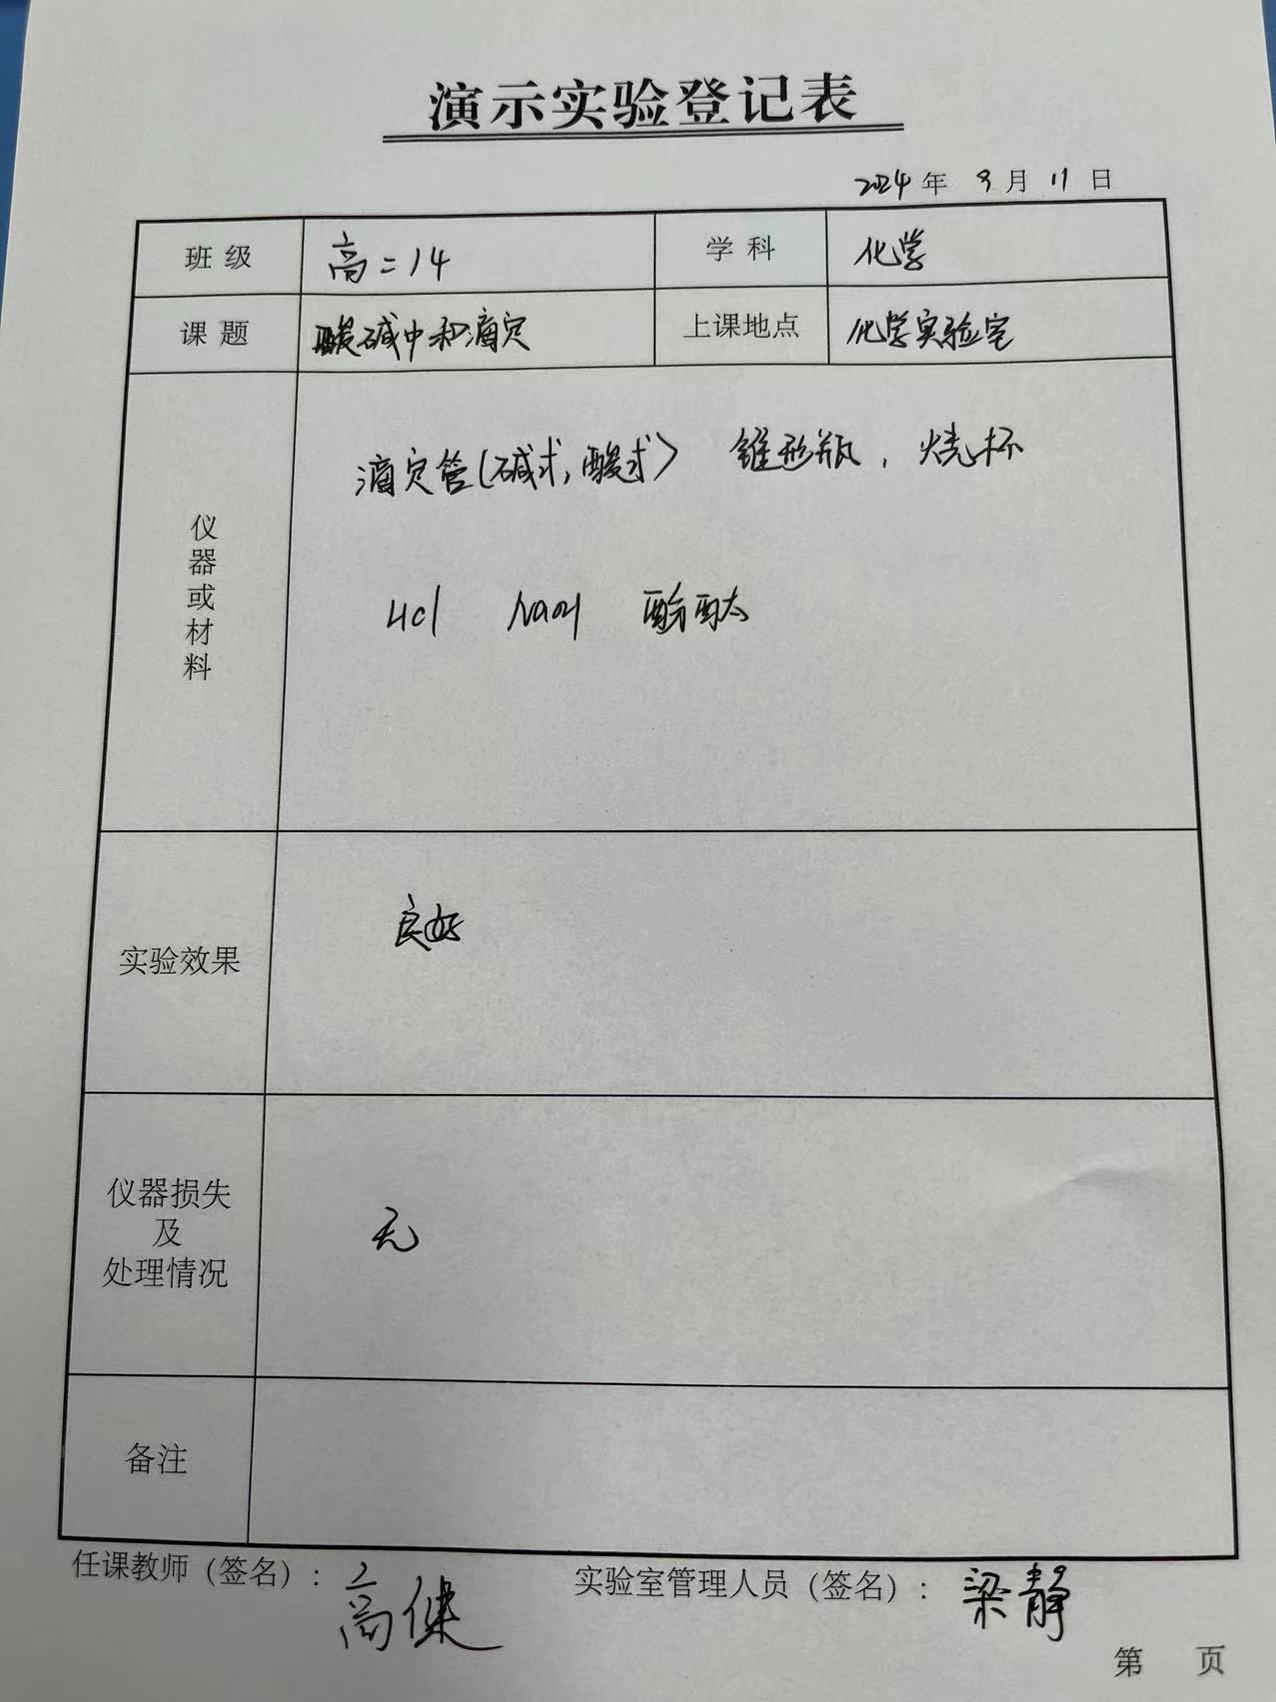 演示实验登记表
2024年 9月 11日
班级 高二14 学科 化学
课题 酸碱中和滴定 上课地点 化学实验室
仪器或材料
滴定管(碱式,酸式) 锥形瓶,烧杯
HCl NaOH 酚酞
实验效果 良好
仪器损失
及
处理情况
无
备注
任课教师(签名):高健 实验室管理人员(签名):梁静
第 页